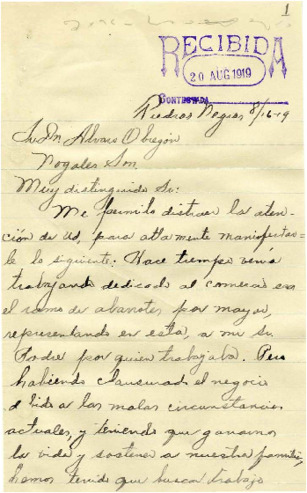 1
RECIBIDA
20 AUG 1919
CONTESTADA
Piedras Negras 8/16-19
Sr. Dn. Alvaro Obregón
Nogales Son.
Muy distinguido Sr:
Me permito distraer la aten-
ción de Ud, para atta mente manifestar-
le lo siguiente: Hace tiempo venía
trabajando dedicado al comercio en
el ramo de abarrotes por mayor,
representando en esta, a mi Sr.
Padre por quien trabajaba. Pero
habiendo clausurado el negocio
debido a las malas circunstancias
actuales, y teniendo que ganarnos
la vida y sostener a nuestra familia,
hemos tenido que buscar trabajo